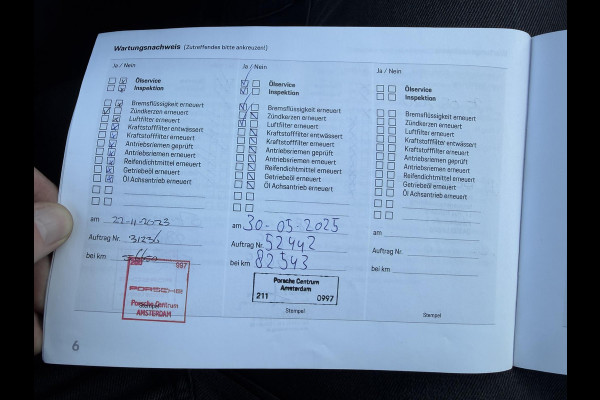 Wartungsnachweis (Zutreffendes bitte ankreuzen!)
Ja / Nein
Ölservice
Inspektion
Bremsflüssigkeit erneuert
Zündkerzen erneuert
Luftfilter erneuert
Kraftstofffilter entwässert
Kraftstofffilter erneuert
Antriebsriemen geprüft
Antriebsriemen erneuert
Reifendichtmittel erneuert
Getriebeöl erneuert
Öl Achsantrieb erneuert
am 22-4-2023
Auftrag Nr.
bei km
997
PORSCHE
Porsche Centrum
AMSTERDAM
Stempel
Ja / Nein
Ölservice
Inspektion
Bremsflüssigkeit erneuert
Zündkerzen erneuert
Luftfilter erneuert
Kraftstofffilter entwässert
Kraftstofffilter erneuert
Antriebsriemen geprüft
Antriebsriemen erneuert
Reifendichtmittel erneuert
Getriebeöl erneuert
Öl Achsantrieb erneuert
am 30-05-2025
Auftrag Nr. 52442
bei km 82543
Porsche Centrum
Amsterdam
211 0997
Stempel
Ja / Nein
Ölservice
Inspektion
Bremsflüssigkeit erneuert
Zündkerzen erneuert
Luftfilter erneuert
Kraftstofffilter entwässert
Kraftstofffilter erneuert
Antriebsriemen geprüft
Antriebsriemen erneuert
Reifendichtmittel erneuert
Getriebeöl erneuert
Öl Achsantrieb erneuert
am
Auftrag Nr.
bei km
Stempel
6